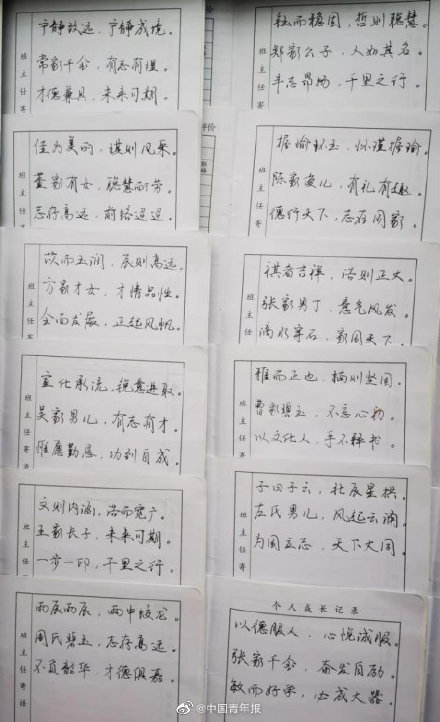 宁静致远，宁静成境。
常家千金，有志有理。
才德兼具，未来可期。
班主任寄
佳为美丽，谋则风采。
董家有女，聪慧耐劳。
志存高远，前路迢迢。
班主任寄
苡而玉润，辰则高远。
方家才女，才情品性。
全面发展，正起风帆。
班主任寄
宣化承流，锐意进取。
吴家男儿，有志有才。
惟愿勤恳，功到自成。
班主任寄语
文则内涵，浩而宽广。
王家长子，未来可期。
一步一印，千里之行。
班主任寄
雨辰雨辰，雨中蛟龙。
周氏碧玉，志存高远。
不负韶华，才德俱嘉。
班主任寄语
钰而稳固，哲则聪慧。
郑家公子，人如其名。
斗志昂扬，千里之行。
班主任寄
评价
握瑜怀玉，怀瑾握瑜。
陈家爱儿，有礼有趣。
德行天下，志在国家。
班主任寄
祺者吉祥，浩则正大。
张家男丁，意气风发。
滴水穿石，家国天下。
班主任寄
雅而正也，楠则坚固。
曹家碧玉，不忘心初。
以文化人，手不释书。
班主任寄
子曰子云，北辰星拱。
左氏男儿，风起云涌。
为国立志，天下大同。
班主任寄
个人成长记录
以德服人，心悦诚服。
张家千金，奋发自励。
敏而好学，必成大器。
班主任寄语
@中国青年报